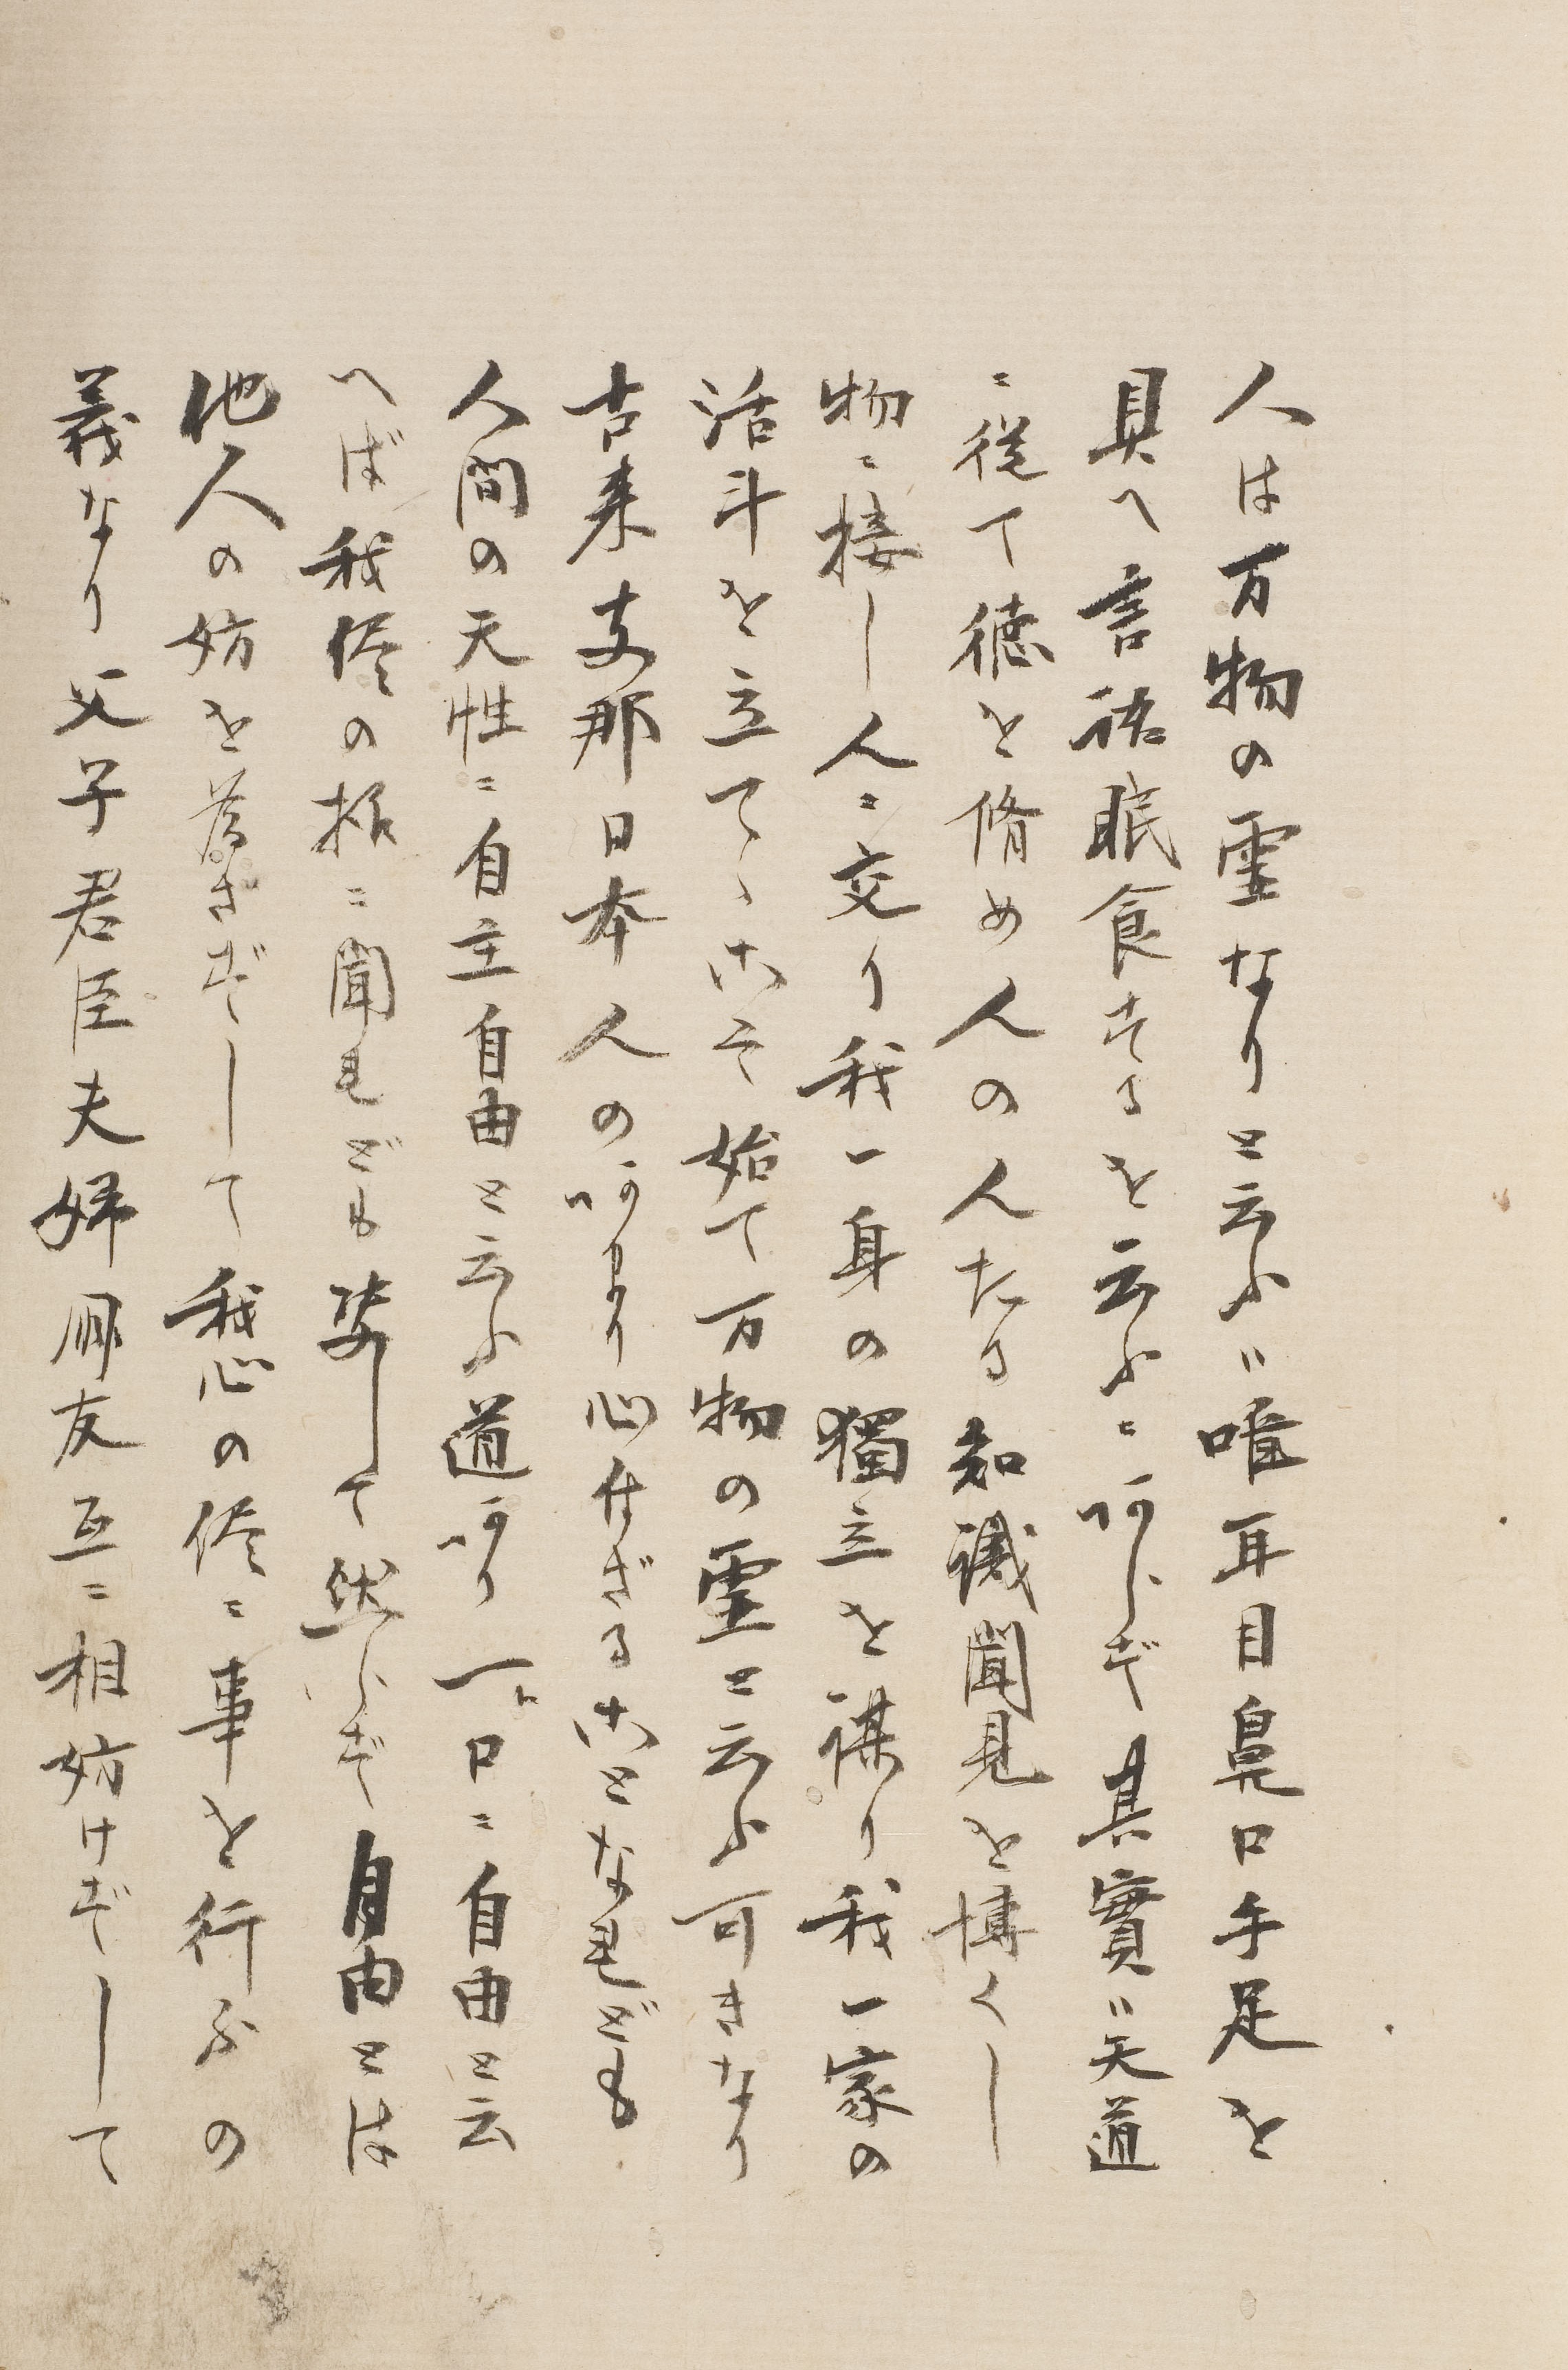 人は万物の霊なりと云ふハ唯耳目鼻口手足を
具へ言語眠食するを云ふニあらず其實ハ天道
ニ従て徳を脩め人の人たる知識聞見を博くし
物ニ接し人ニ交り我一身の獨立を謀り我一家の
活計を立てゝこそ始て万物の霊と云ふ可きなり
古来支那日本人のあまり心付ざることなれども
人間の天性ニ自主自由と云ふ道あり一ト口ニ自由と云
へば我儘の様ニ聞れども决して然らず自由とは
他人の妨を為さずして我心の儘ニ事を行ふの
義なり父子君臣夫婦朋友互ニ相妨げずして